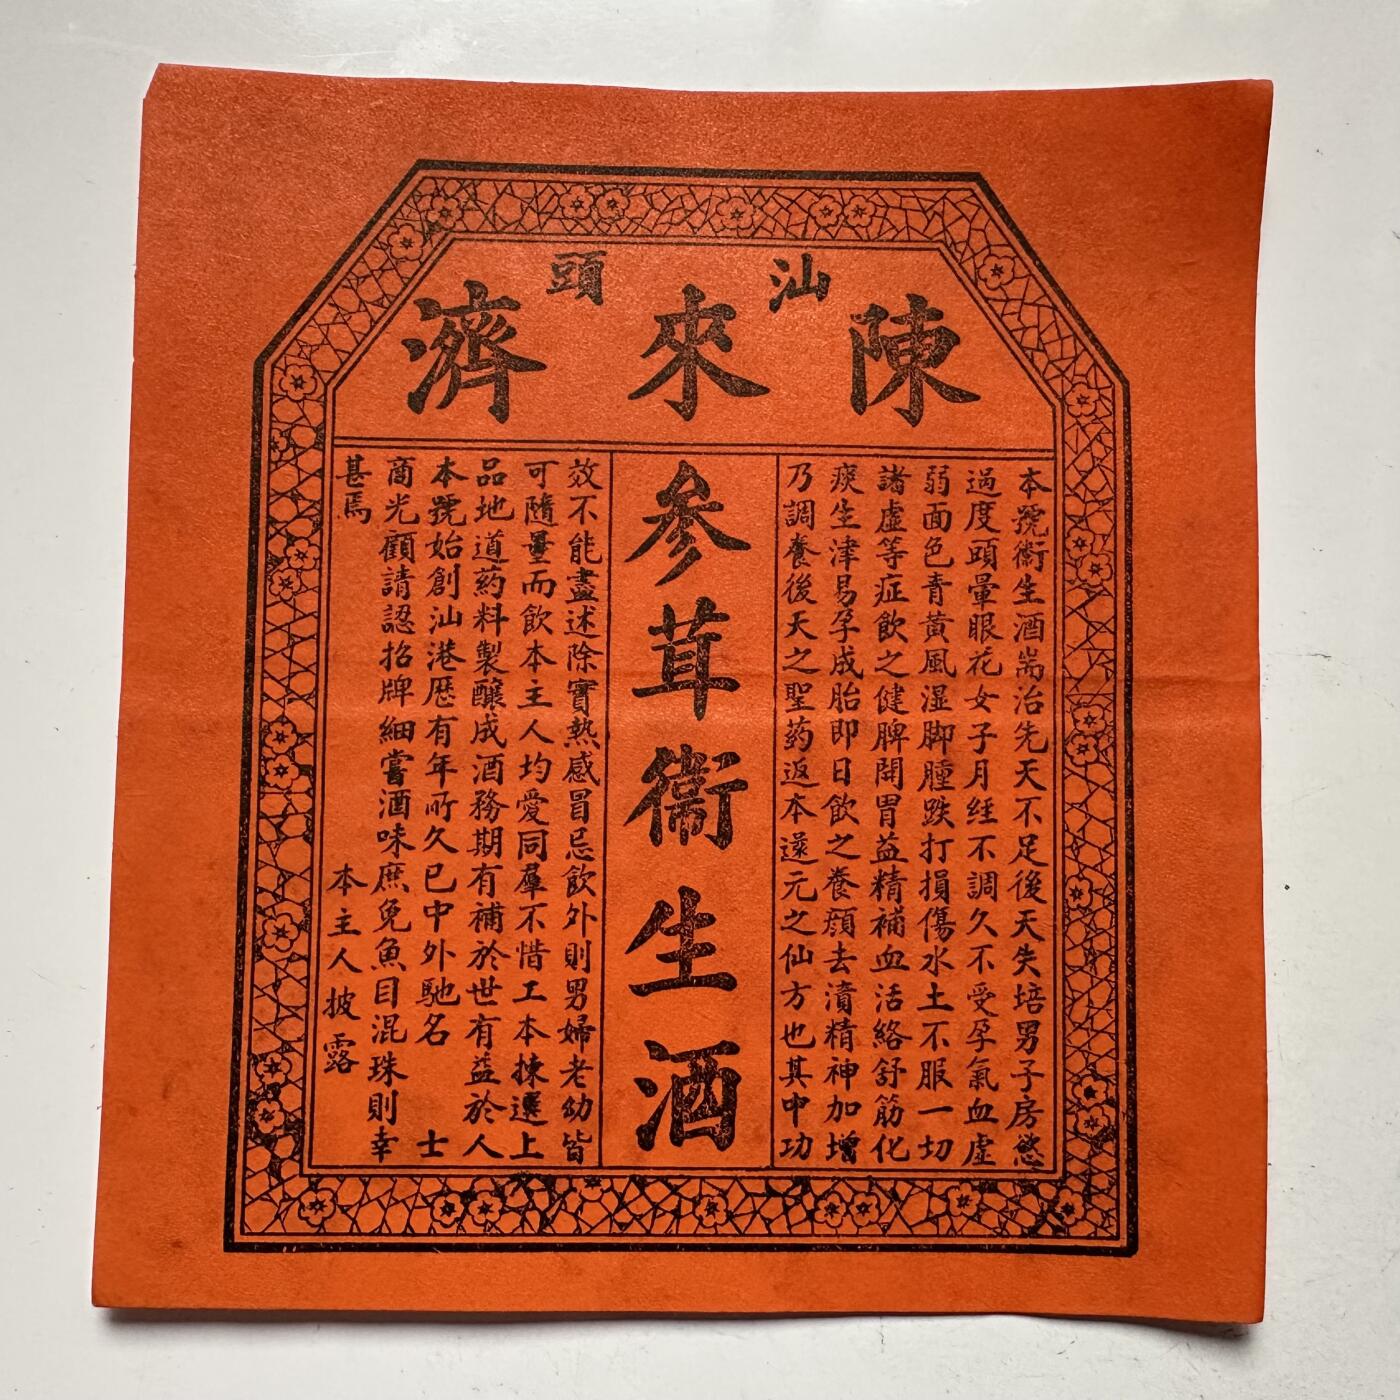 汕頭
陳來濟
本號衛生酒耑治先天不足後天失培男子房慾
過度頭暈眼花女子月經不調久不受孕氣血虛
弱面色青黃風湿脚腫跌打損傷水土不服一切
諸虛等症飲之健脾開胃益精補血活絡舒筋化
痰生津易孕成胎即日飲之養顔去瀆精神加增
乃調養後天之聖药返本還元之仙方也其中功
參茸衛生酒
效不能盡述除實熱感冒忌飲外則男婦老幼皆
可隨量而飲本主人均愛同羣不惜工本揀選上
品地道药料製釀成酒務期有補於世有益於人
本號始創汕港歷有年所久已中外馳名 士
商光顧請認招牌細嘗酒味庶免魚目混珠則幸
甚焉 本主人披露